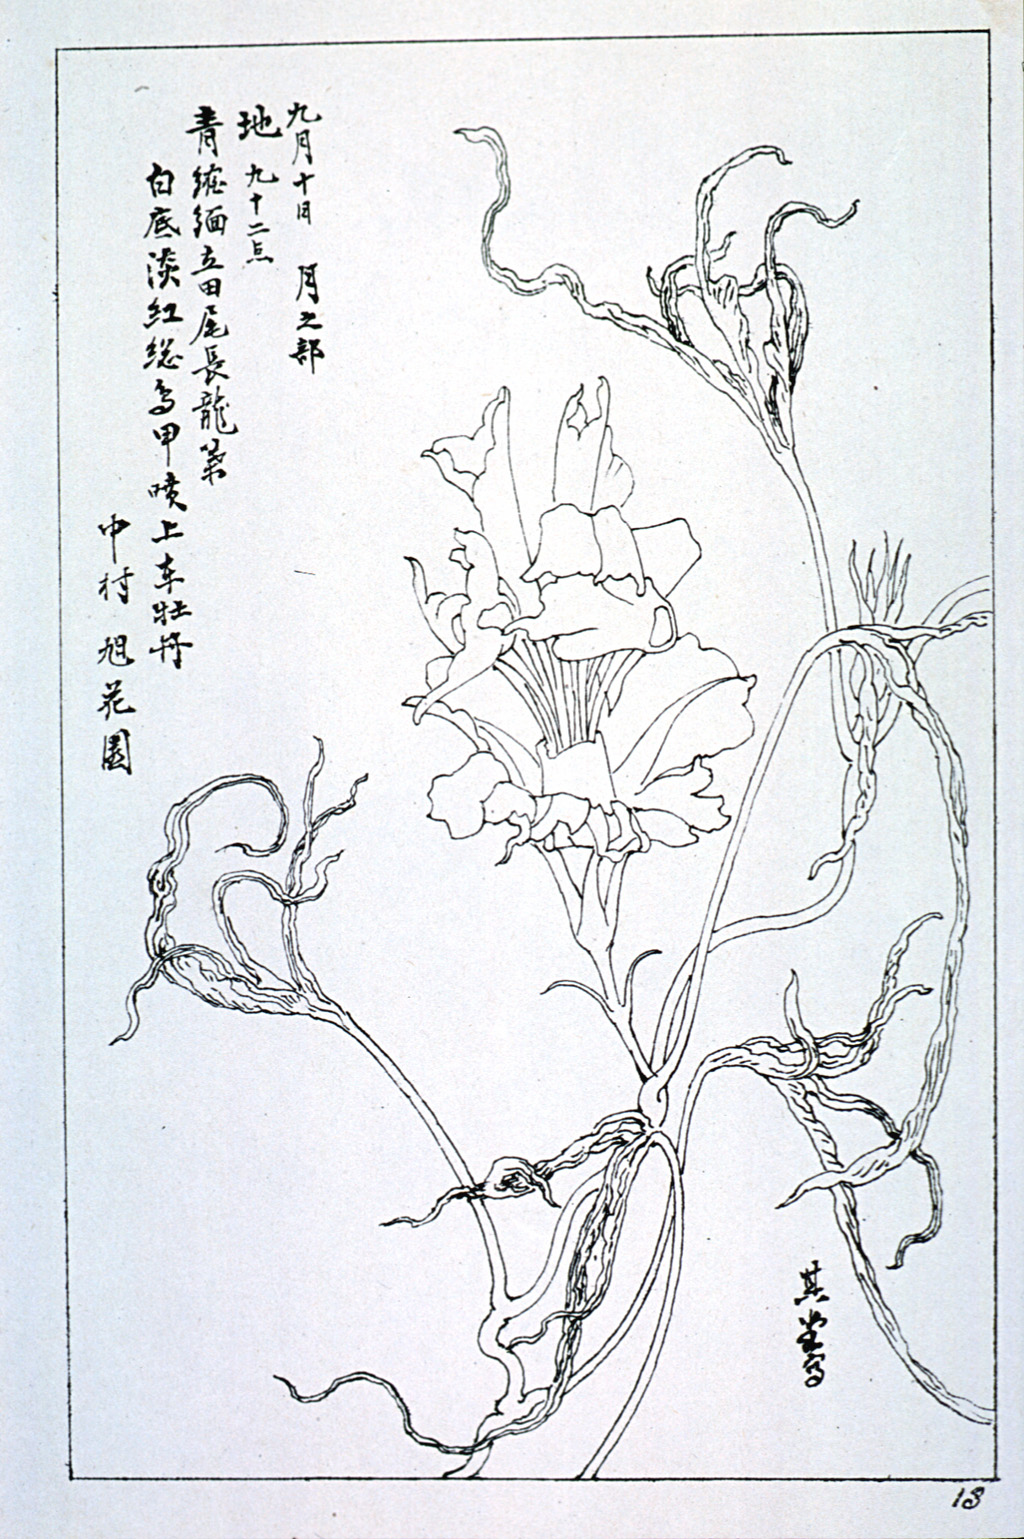 九月十日 月之部
地 九十二点
青縮緬立田尾長龍葉
白底淡紅総鳥甲噴上車牡丹
中村旭花園
其堂写
13